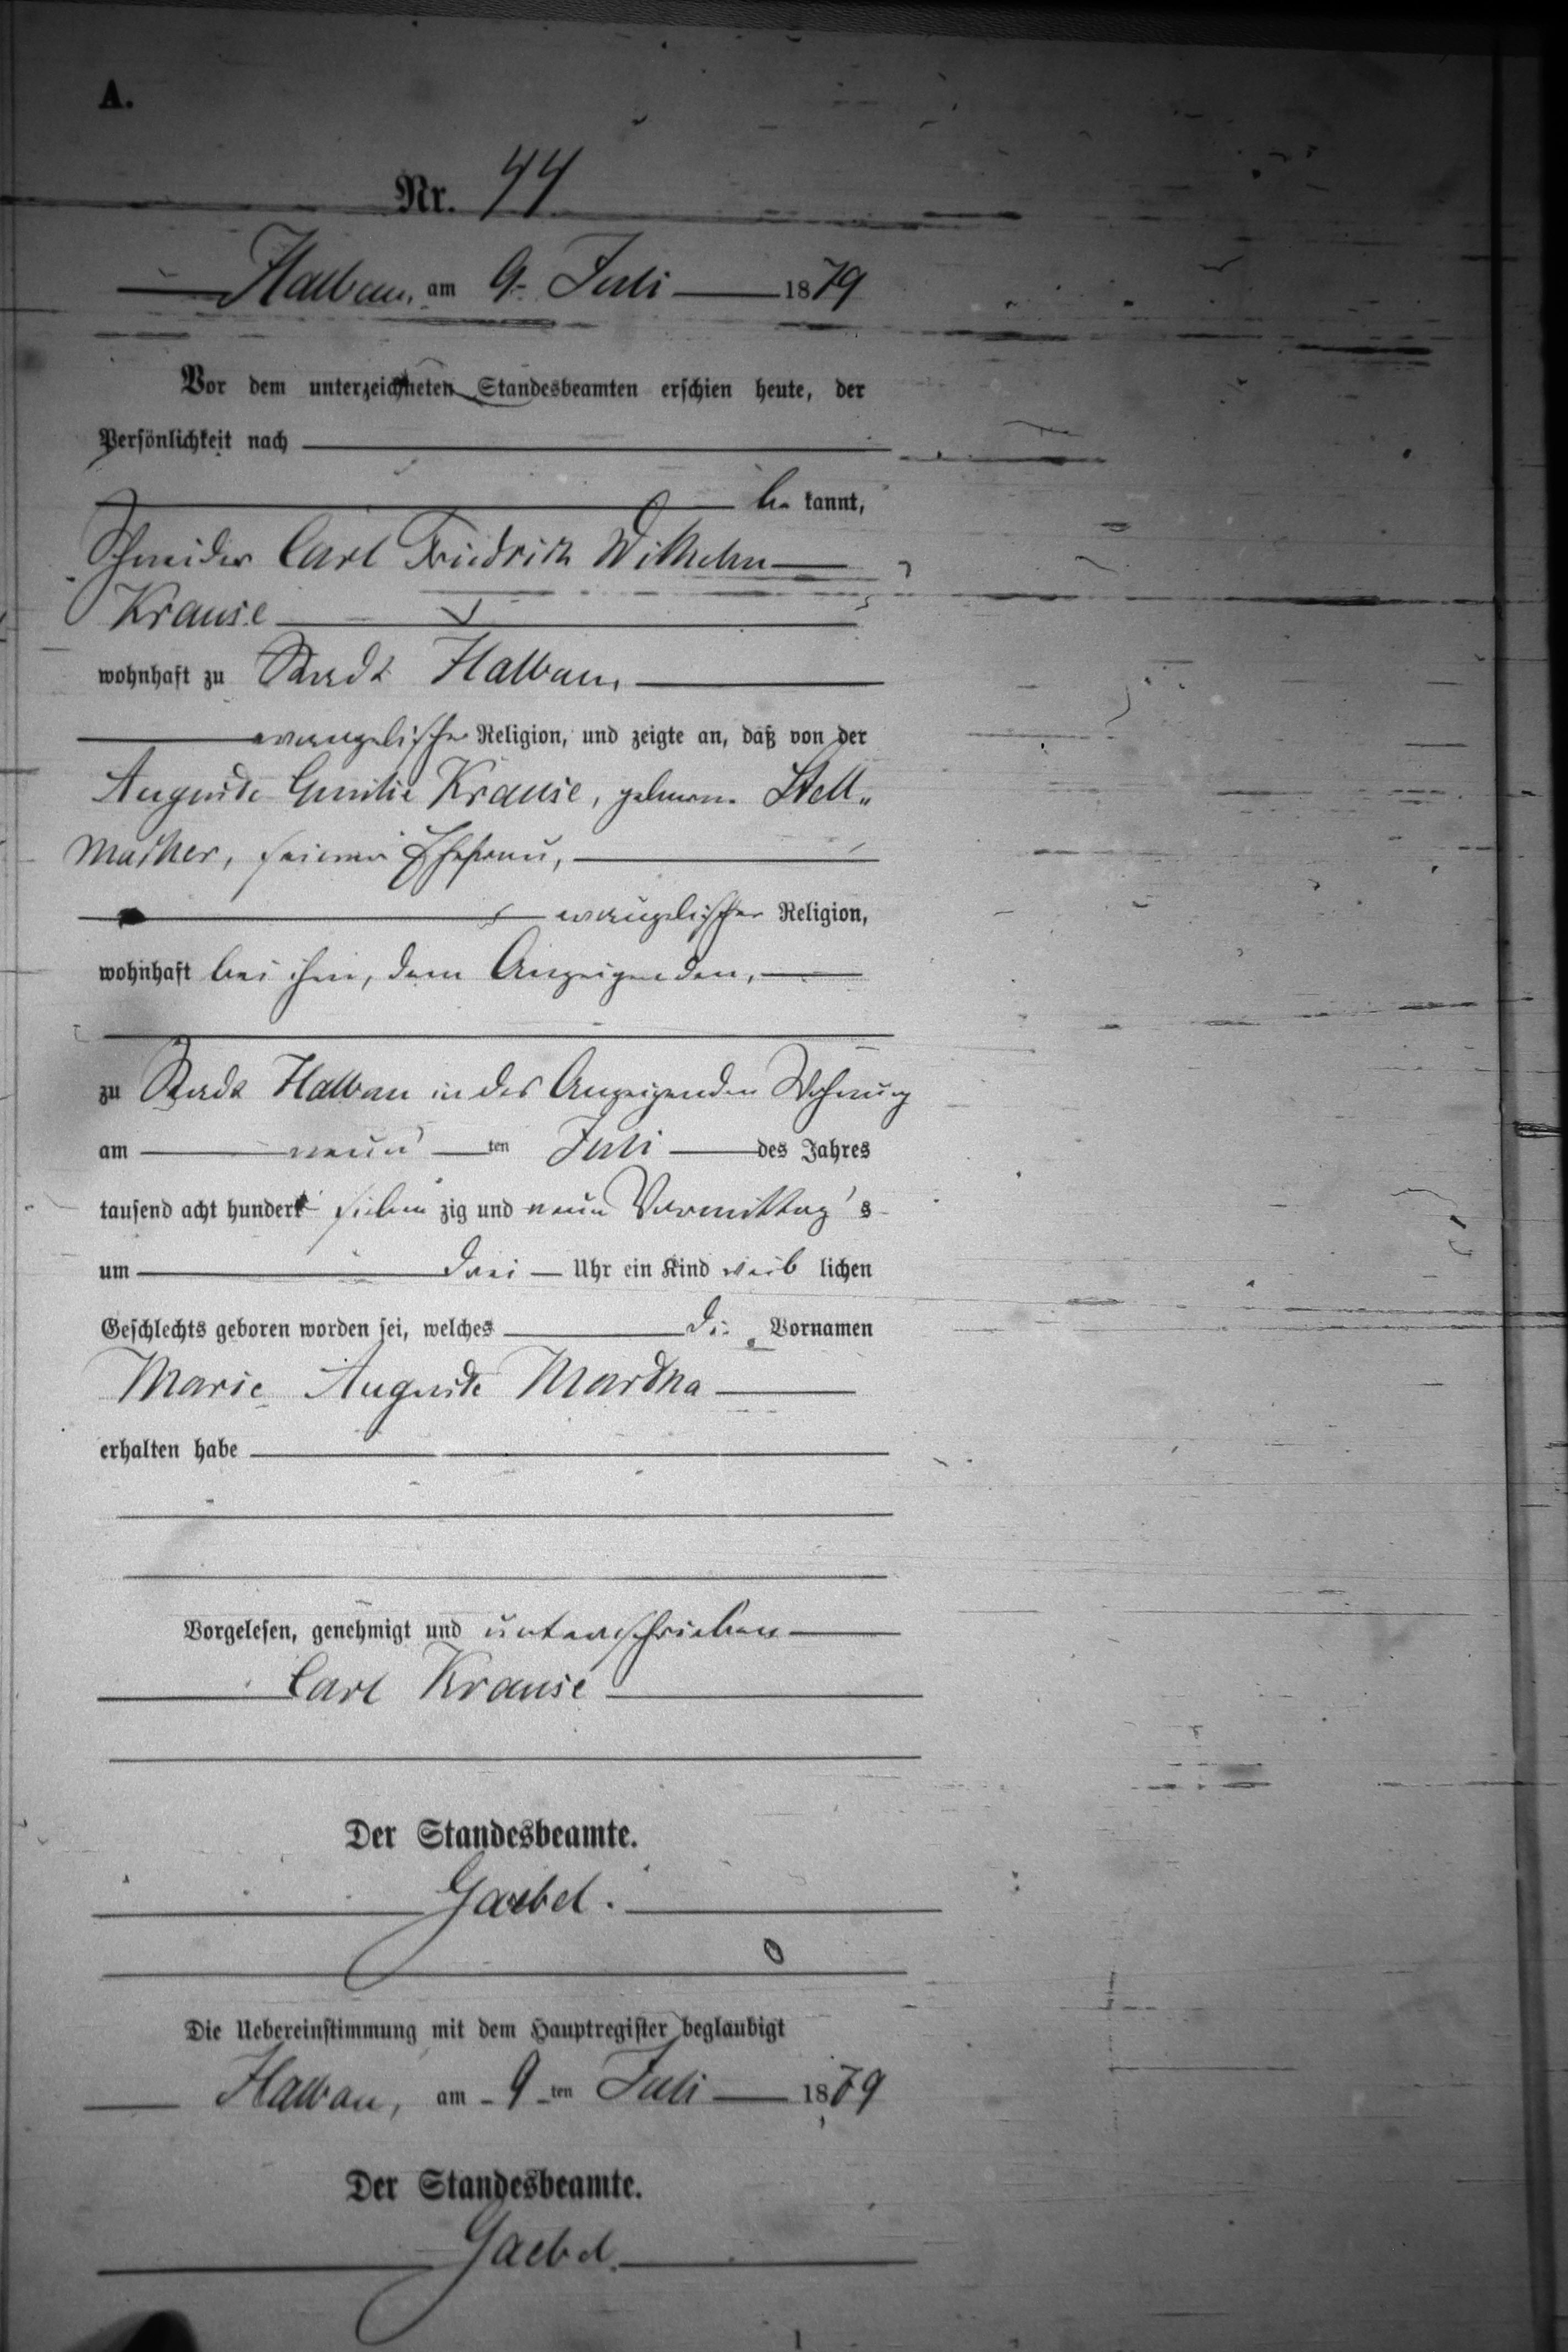 A.
Nr. 44
Halbau, am 9. Juli 1879
Vor dem unterzeichneten Standesbeamten erschien heute, der
Persönlichkeit nach
be kannt,
Schneider Carl Friedrich Wilhelm
Krause
wohnhaft zu Stadt Halbau,
evangelischer Religion, und zeigte an, daß von der
Auguste Emilie Krause, geborne Stell„
macher, seiner Ehefrau,
evangelischer Religion,
wohnhaft bei ihm, dem Anzeigenden,
zu Stadt Halbau in des Anzeigenden Wohnung
am neun ten Juli des Jahres
tausend acht hundert sieben zig und neun Vormittag s
um drei Uhr ein Kind weib lichen
Geschlechts geboren worden sei, welches die Vornamen
Marie Auguste Martha
erhalten habe
Vorgelesen, genehmigt und unterschrieben
Carl Krause
Der Standesbeamte.
Gaebel.
Die Uebereinstimmung mit dem Hauptregister beglaubigt
Halbau, am 9 ten Juli 1879
Der Standesbeamte.
Gaebel.